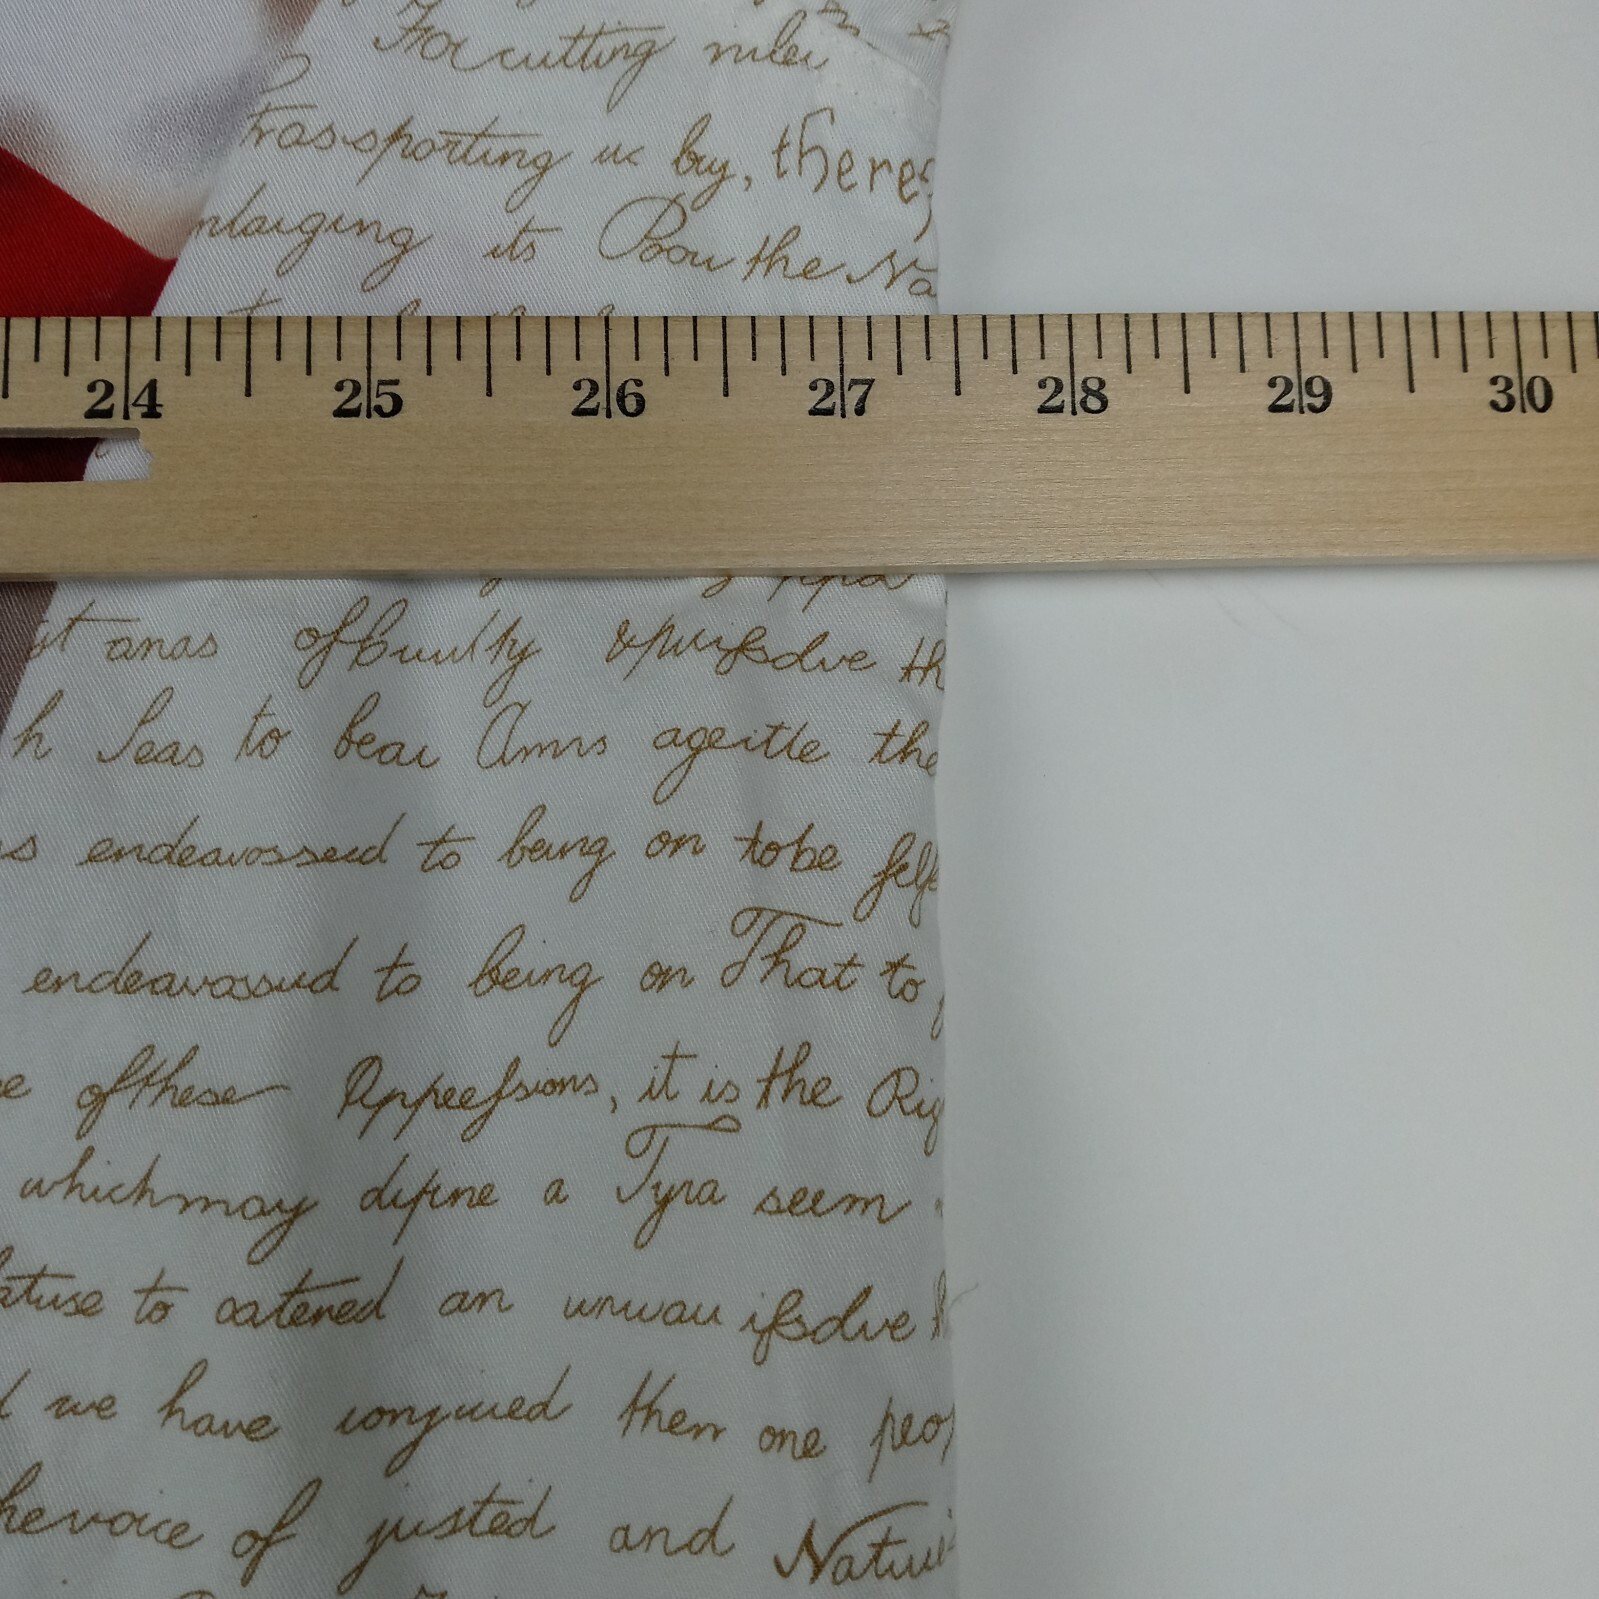 For cutting
trassporting by, there
nlaiging its the Na
24 25 26 27 28 29 30
ppa
st anas
h Seas to bear Arms ageitle the
s endeavosseed to being on tobe felfe
endeavassud to being on That to
e ofthese Rppeefsions, it is the Rig
whichmay difine a Tyra seem
atuse to oatened an unwau ifsdve
we have them one peop
hevoice of justed and Natu